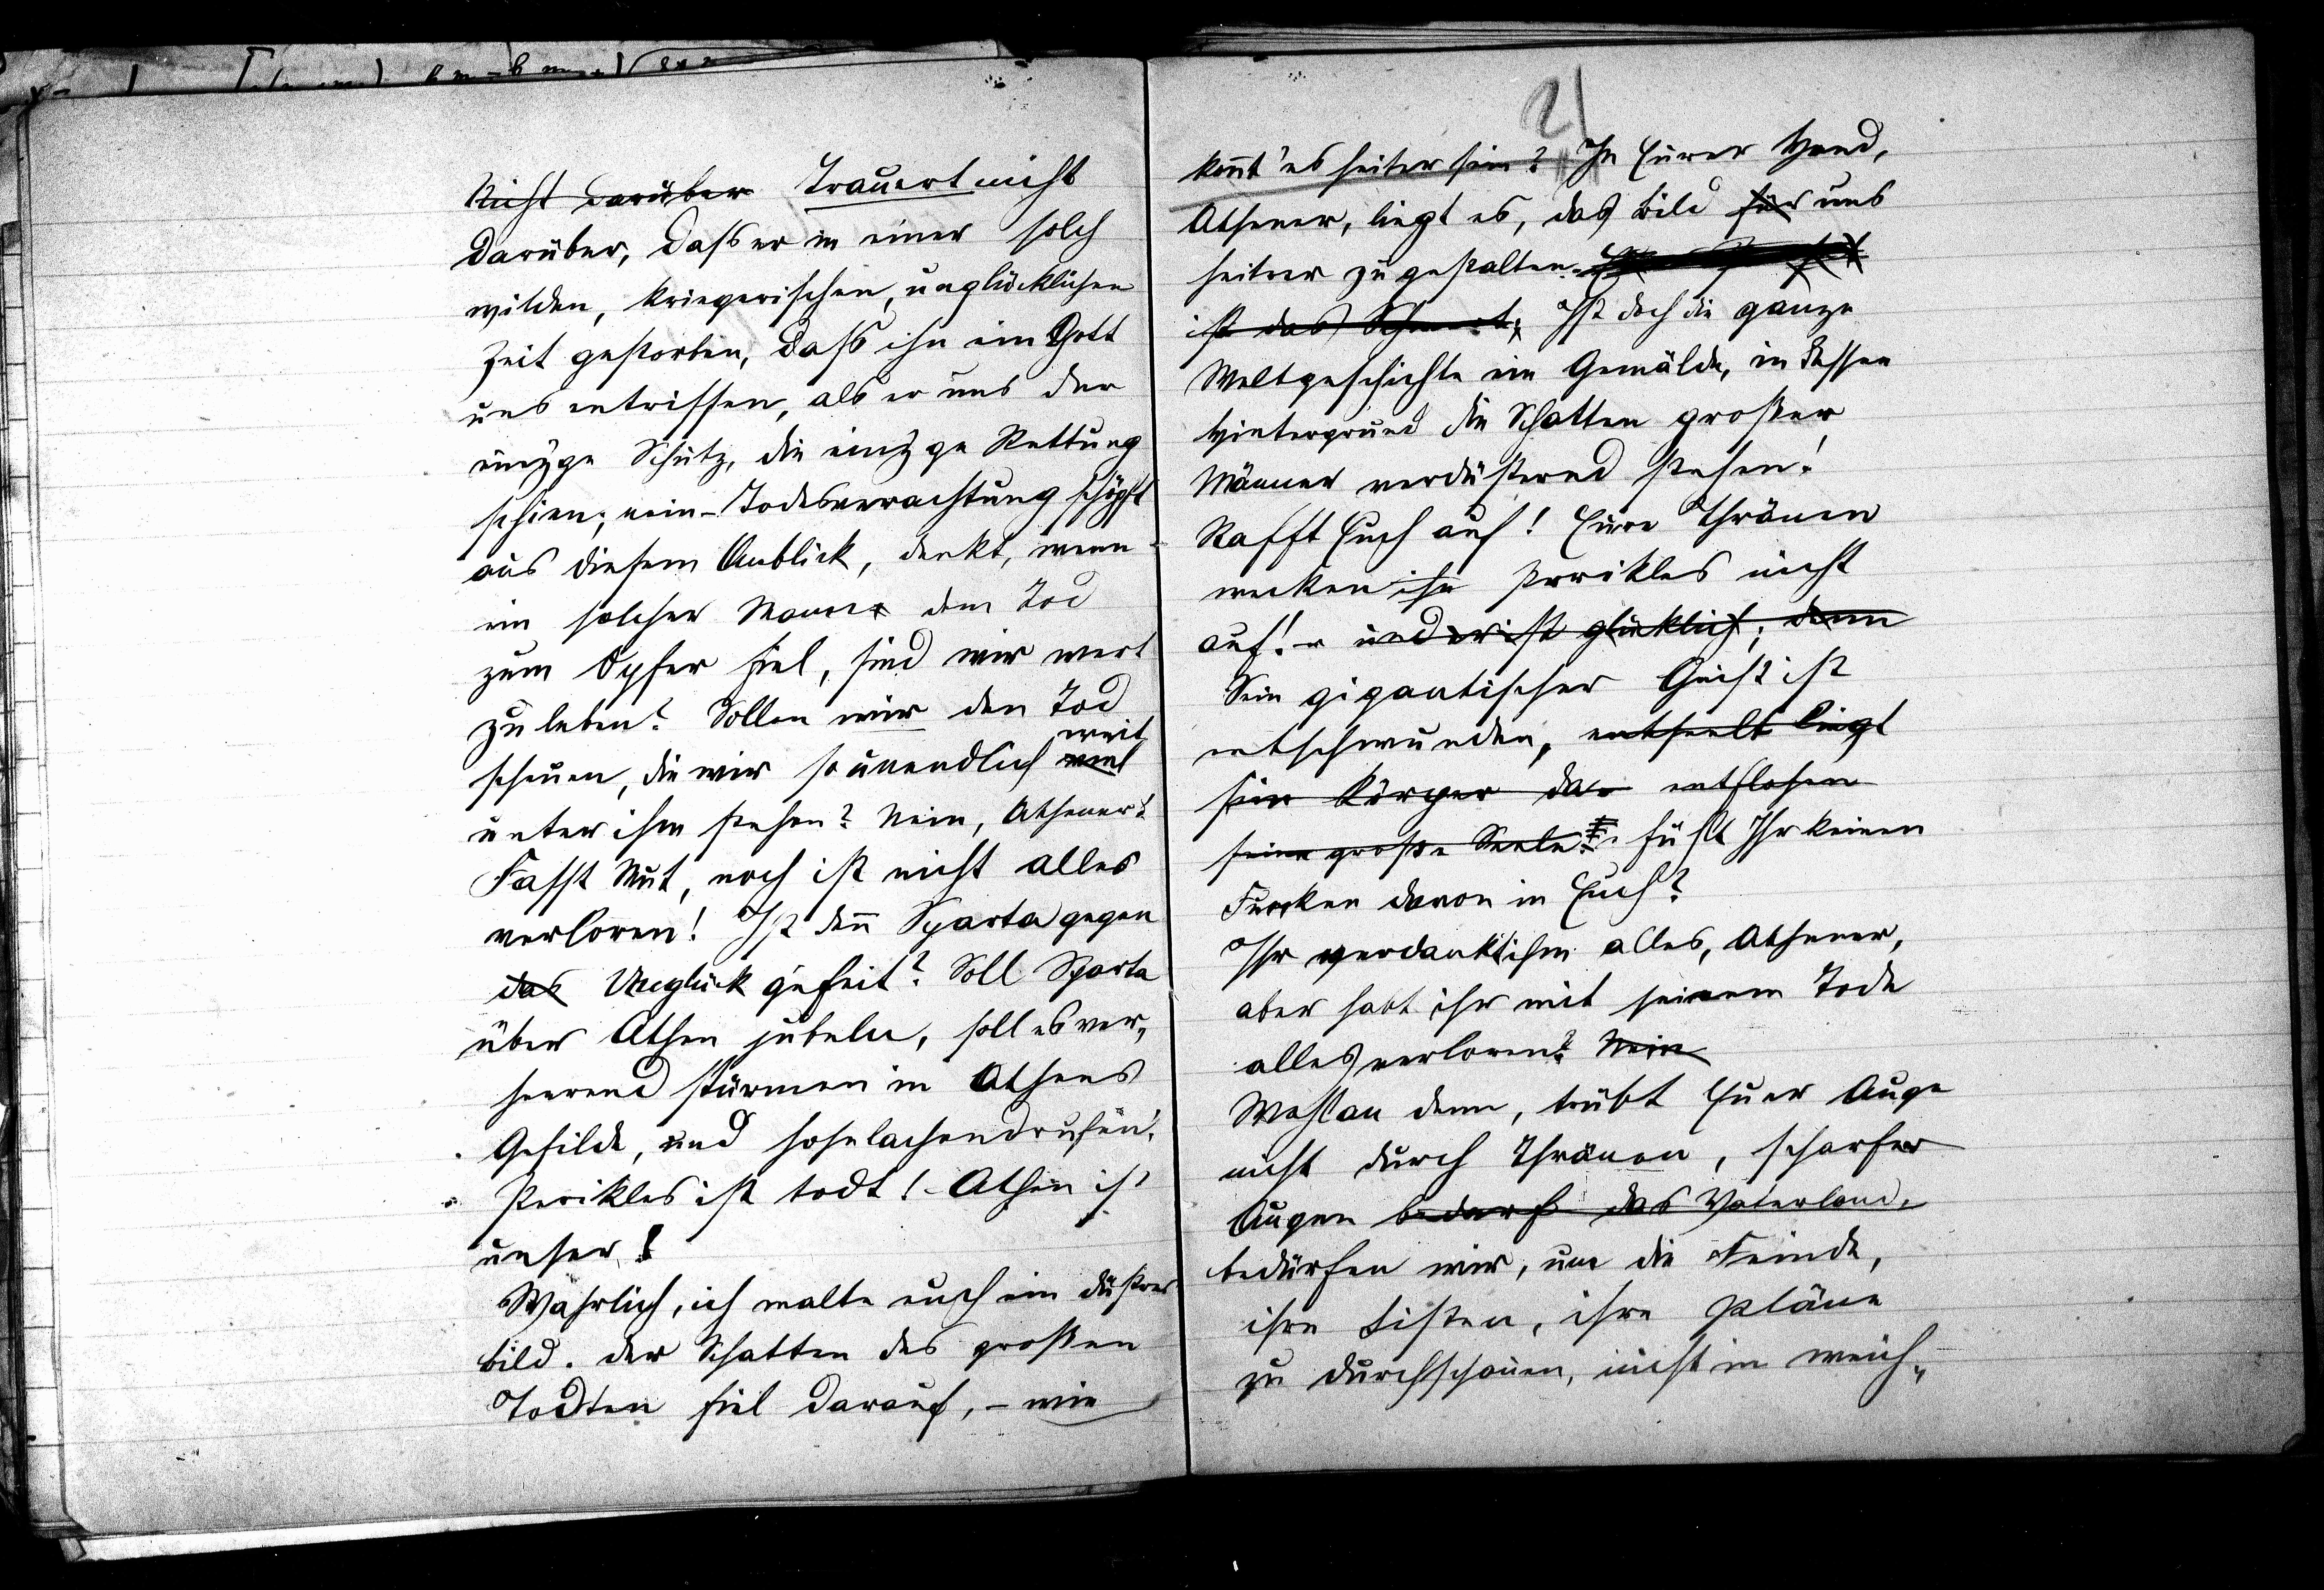 Nicht darüber Trauert nicht
darüber, dass er in einer solch
wilden, kriegerischen, unglücklichen
Zeit gestorben, dass ihn ein Gott
uns entrissen, als er uns der
einzge Schutz, die einzge Rettung
schien; nein – Todesverachtung schöpft
aus diesem Anblick, denkt, wenn
ein solcher Mann dem Tod
zum Opfer fiel, sind wir wert
zu leben? Sollen wir den Tod
weit
scheuen, die wir so unendlich viel
unter ihm stehen? Nein, Athener!
Fasst Mut, noch ist nicht alles
verloren! Ist denn Sparta gegen
das Unglück gefeit? Soll Sparta
über Athen jubeln, soll es ver„
heerend stürmen in Athens
Gefilde, und hohnlachend rufen:
„Perikles ist todt! – Athen ist
unser!
Wahrlich, ich malte euch ein düstres
Bild. Der Schatten des großen
Todten fiel darauf, – wie
21
könnt' es heiter sein? In Eurer Hand,
Athener, liegt es, das Bild für uns
heitrer zu gestalten.
ist das Ist doch die ganze
Weltgeschichte ein Gemälde, in dessen
Hintergrund die Schatten großer
Männer verdüsternd stehen!
Rafft Euch auf! Eure Thränen
wecken ihn Perikles nicht
auf! – und er ist glücklich; denn
Sein gigantischer Geist ist
entschwunden, entseelt liegt
sein Körper da – entflohen
seine große Seele. Fühlt Ihr keinen
Funken davon in Euch?
Ihr verdankt ihm alles, Athener,
aber habt ihr mit seinem Tode
alles verloren? Nein
Wohlan denn, trübt Euer Auge
nicht durch Thränen, scharfer
Augen bedarf das Vaterland,
bedürfen wir, um die Feinde,
ihre Listen, ihre Pläne
zu durchschauen, nicht in weich„